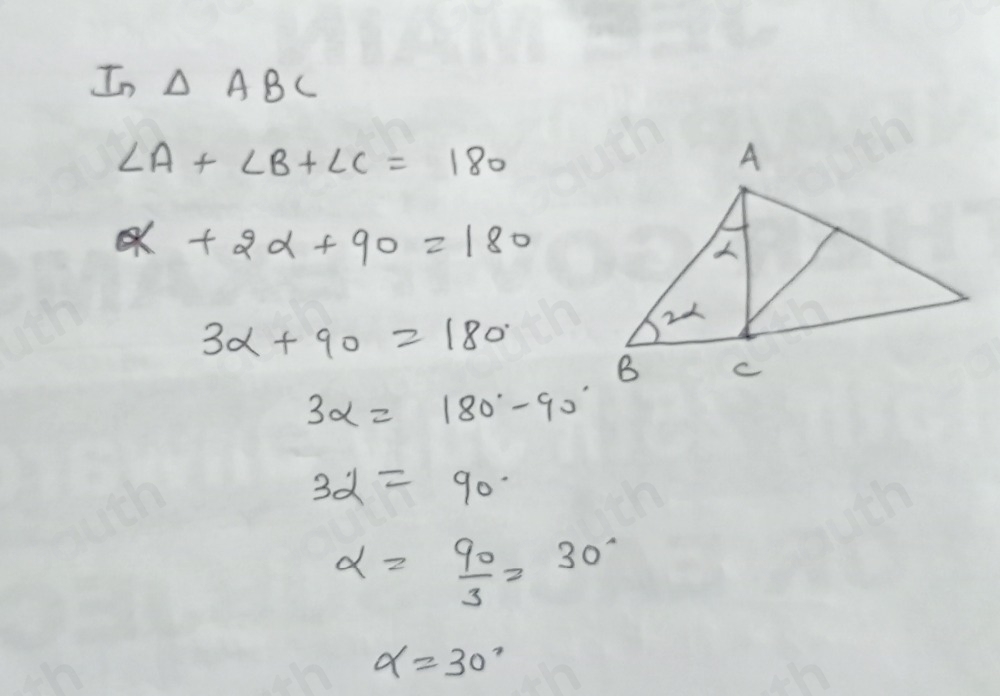 In Δ ABC
∠A + ∠B + ∠C = 180
α + 2α + 90 = 180
3α + 90 = 180°
3α = 180° - 90°
3α = 90°
α = 90/3 = 30°
α = 30°
A
α
2α
B
C